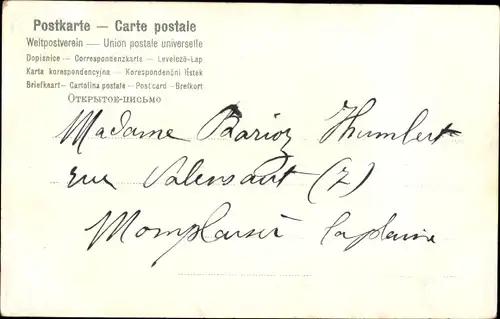 Postkarte — Carte postale
Weltpostverein — Union postale universelle
Dopisnice — Correspondenzkarte — Levelező-Lap
Karta korespondencyjna — Korespondenční lístek
Briefkaart — Cartolina postale — Postcard — Brefkort
Открытое-письмо
Madame Barioz Humbert
rue (7)
Momplaisir Laplaine